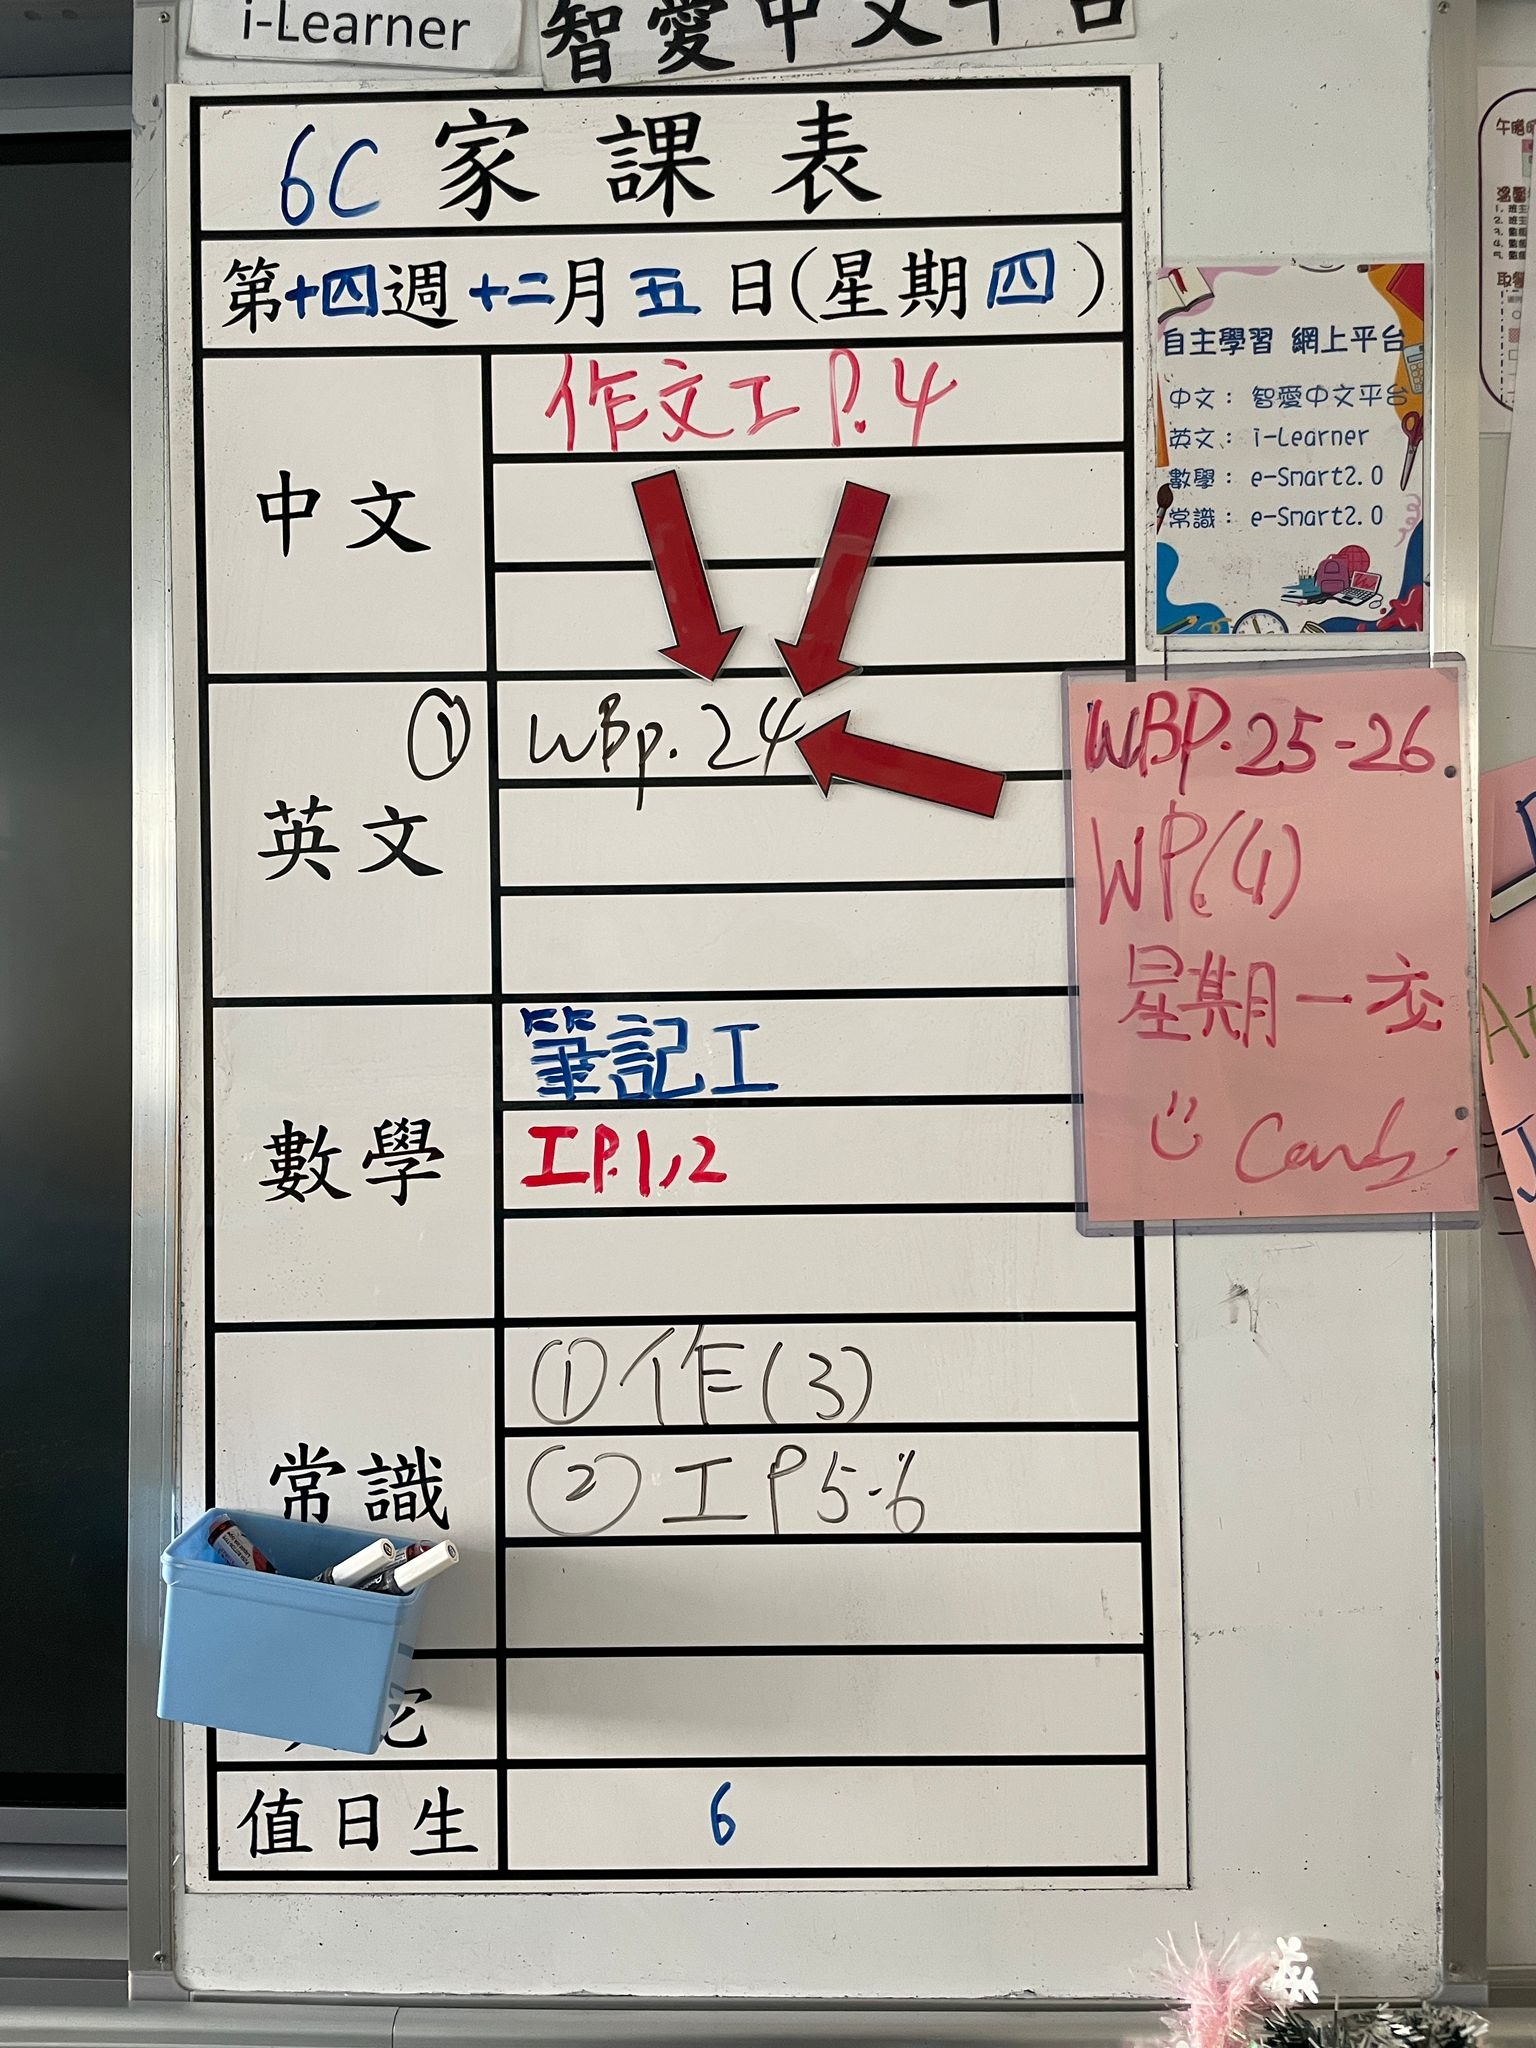 i-Learner
智愛中文平台
6C 家課表
第十四週 十二月五日(星期四)
中文
作文工 P.4
英文
① WBp.24
數學
筆記工
工P.1,2
常識
①作(3)
②工P5-6
值日生
6
自主學習 網上平台
中文： 智愛中文平台
英文： i-Learner
數學： e-Smart2.0
常識： e-Smart2.0
WBP.25-26
WP.(4)
星期一交